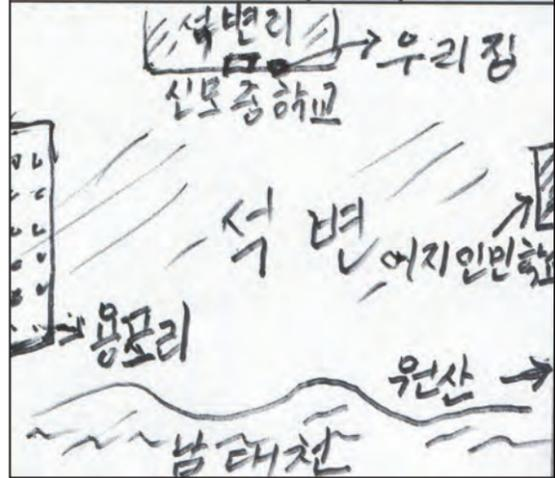 석변리
우리집
신모중학교
석변
어지인민학교
용포리
원산
남대천